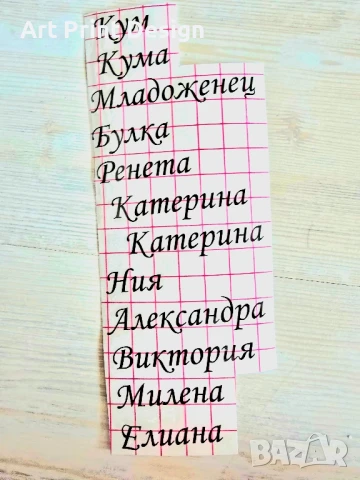 Art Print Design
Кум
Кума
Младоженец
Булка
Ренета
Катерина
Катерина
Ния
Александра
Виктория
Милена
Елиана
BAZAR